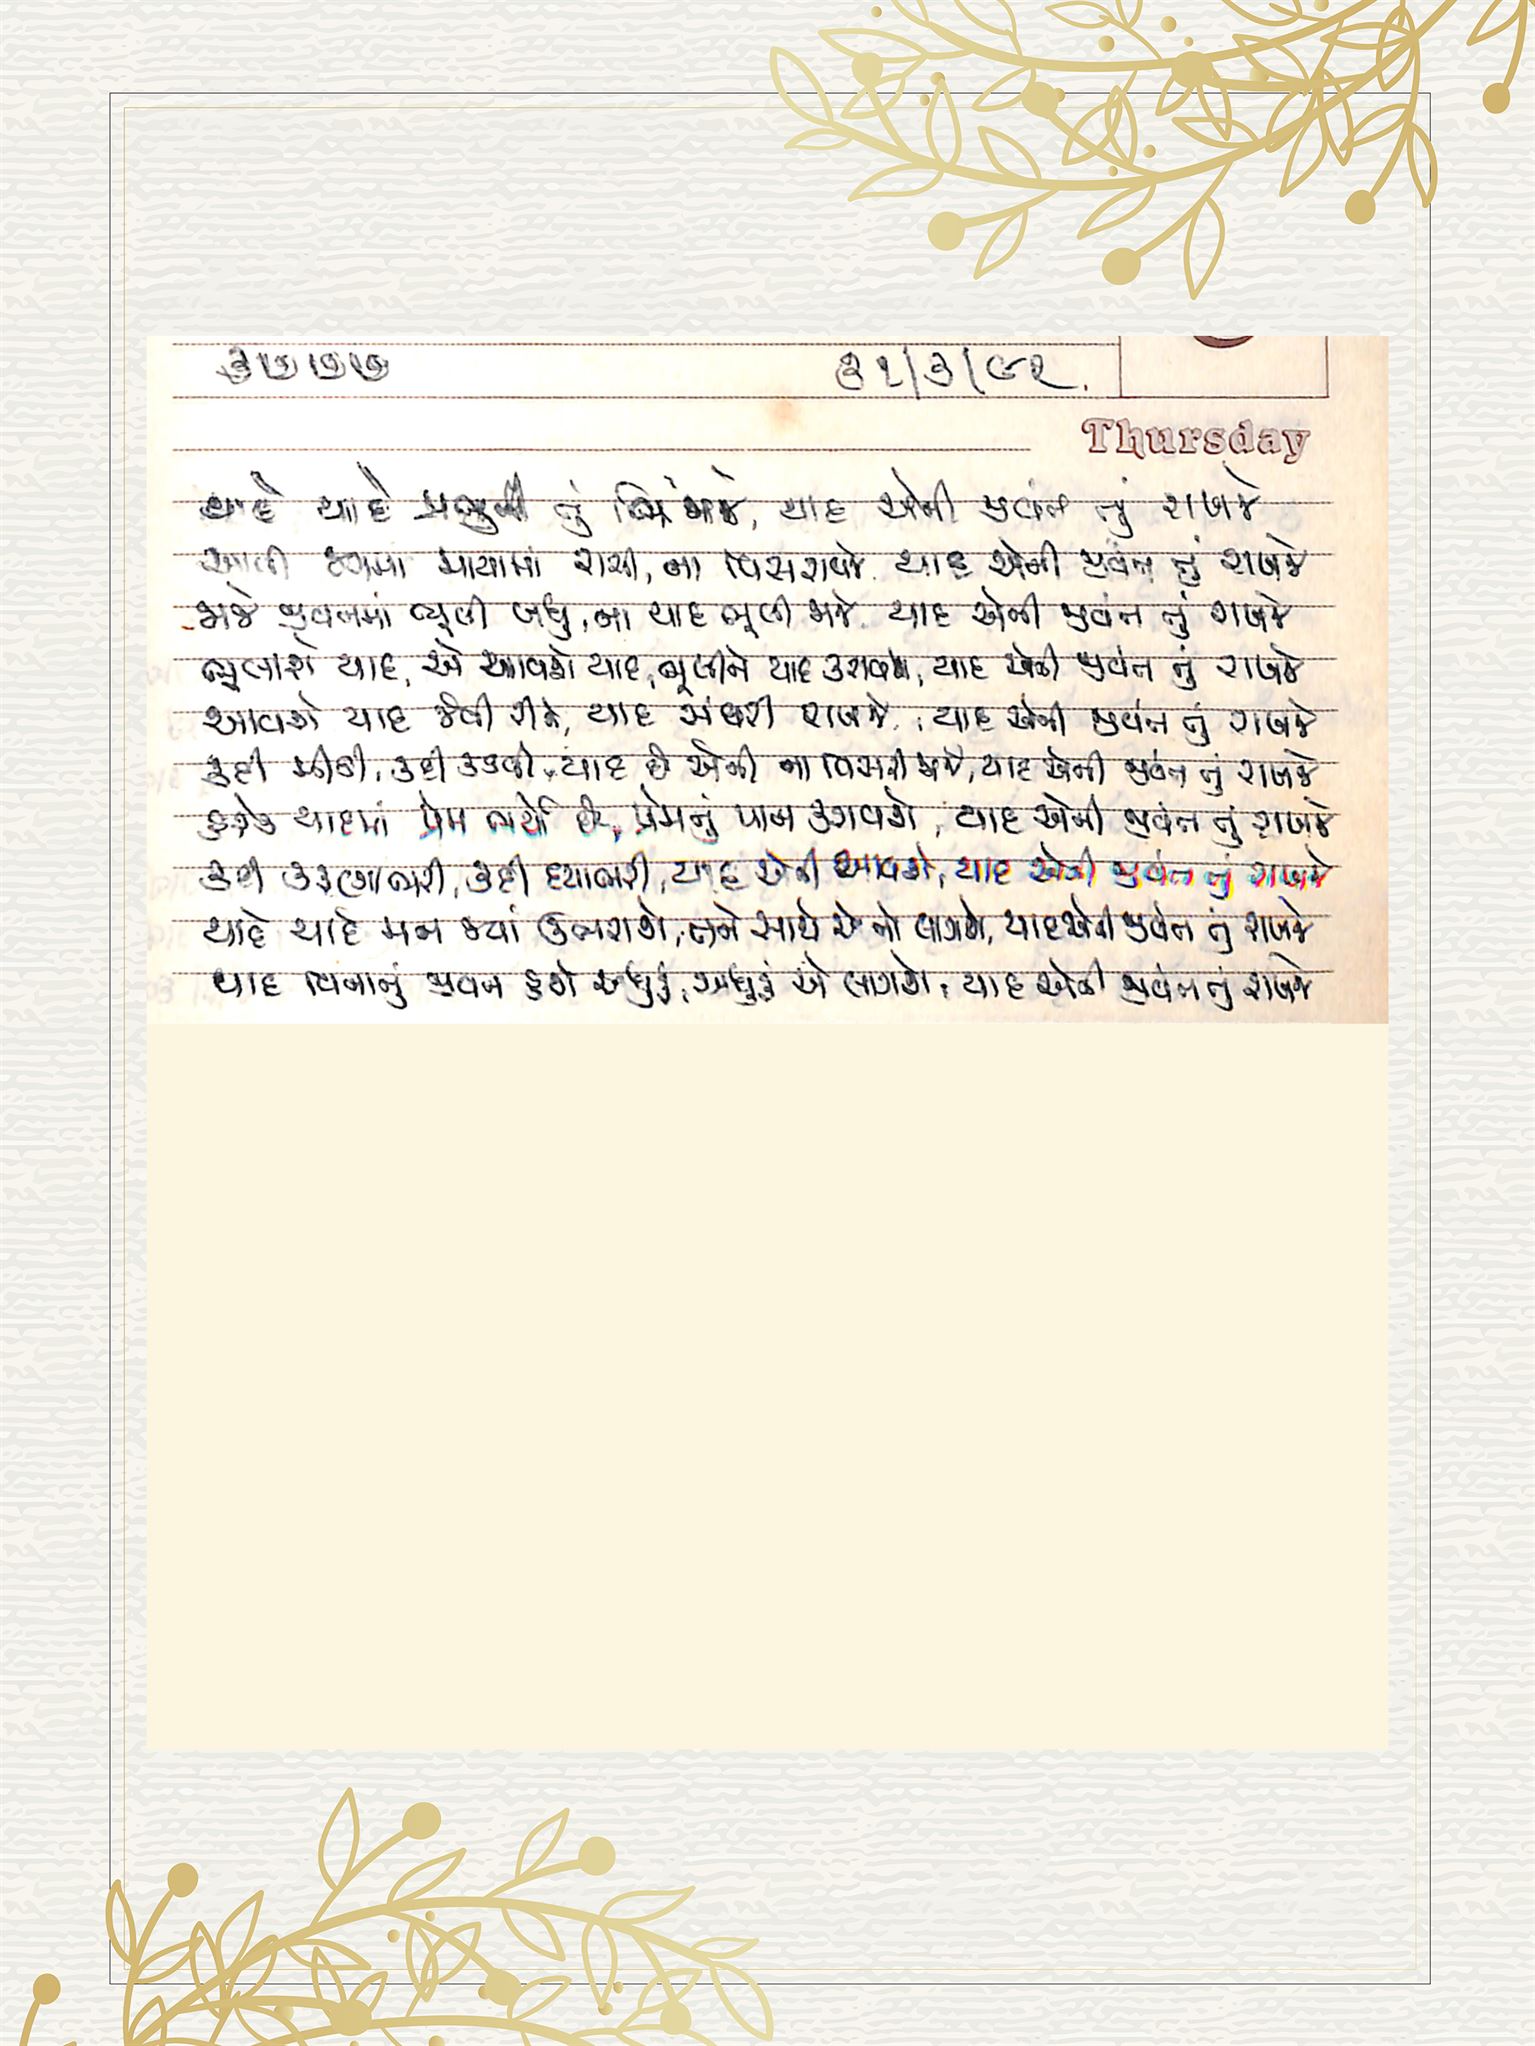 ૩૭૭૭ ૩૧/૩/૯૨.
Thursday
યાદે યાદે પ્રભુની તું ભીંજાજે, યાદ એની જીવંત તું રાખજે
આવી જગમાં માયામાં રાચી, ના વિસરાવજે. યાદ એની જીવંત તું રાખજે
જાજે જીવનમાં ભૂલી બધું, ના યાદ ભૂલી જાજે. યાદ એની જીવંત તું રાખજે
ભુલાશે યાદ, એ આવશે યાદ, ભૂલીને યાદ, યાદ એની જીવંત તું રાખજે
આવશે યાદ કેવી રીતે, યાદ સંઘરી રાખજે, યાદ એની જીવંત તું રાખજે
કદી મીઠી, કદી કડવી, યાદ છે એની ના વિસરી જાજે, યાદ એની જીવંત તું રાખજે
હરેક યાદમાં પ્રેમ ભર્યો છે, પ્રેમનું પાન કરાવશે, યાદ એની જીવંત તું રાખજે
કદી કરુણાભરી, કદી દયાભરી, યાદ એની આવશે, યાદ એની જીવંત તું રાખજે
યાદે યાદે મન જ્યાં ઉભરાશે, તને સાથે એ તો લાગશે, યાદ એની જીવંત તું રાખજે
યાદ વિનાનું જીવન હશે અધુરું, અધુરું એ લાગશે, યાદ એની જીવંત તું રાખજે